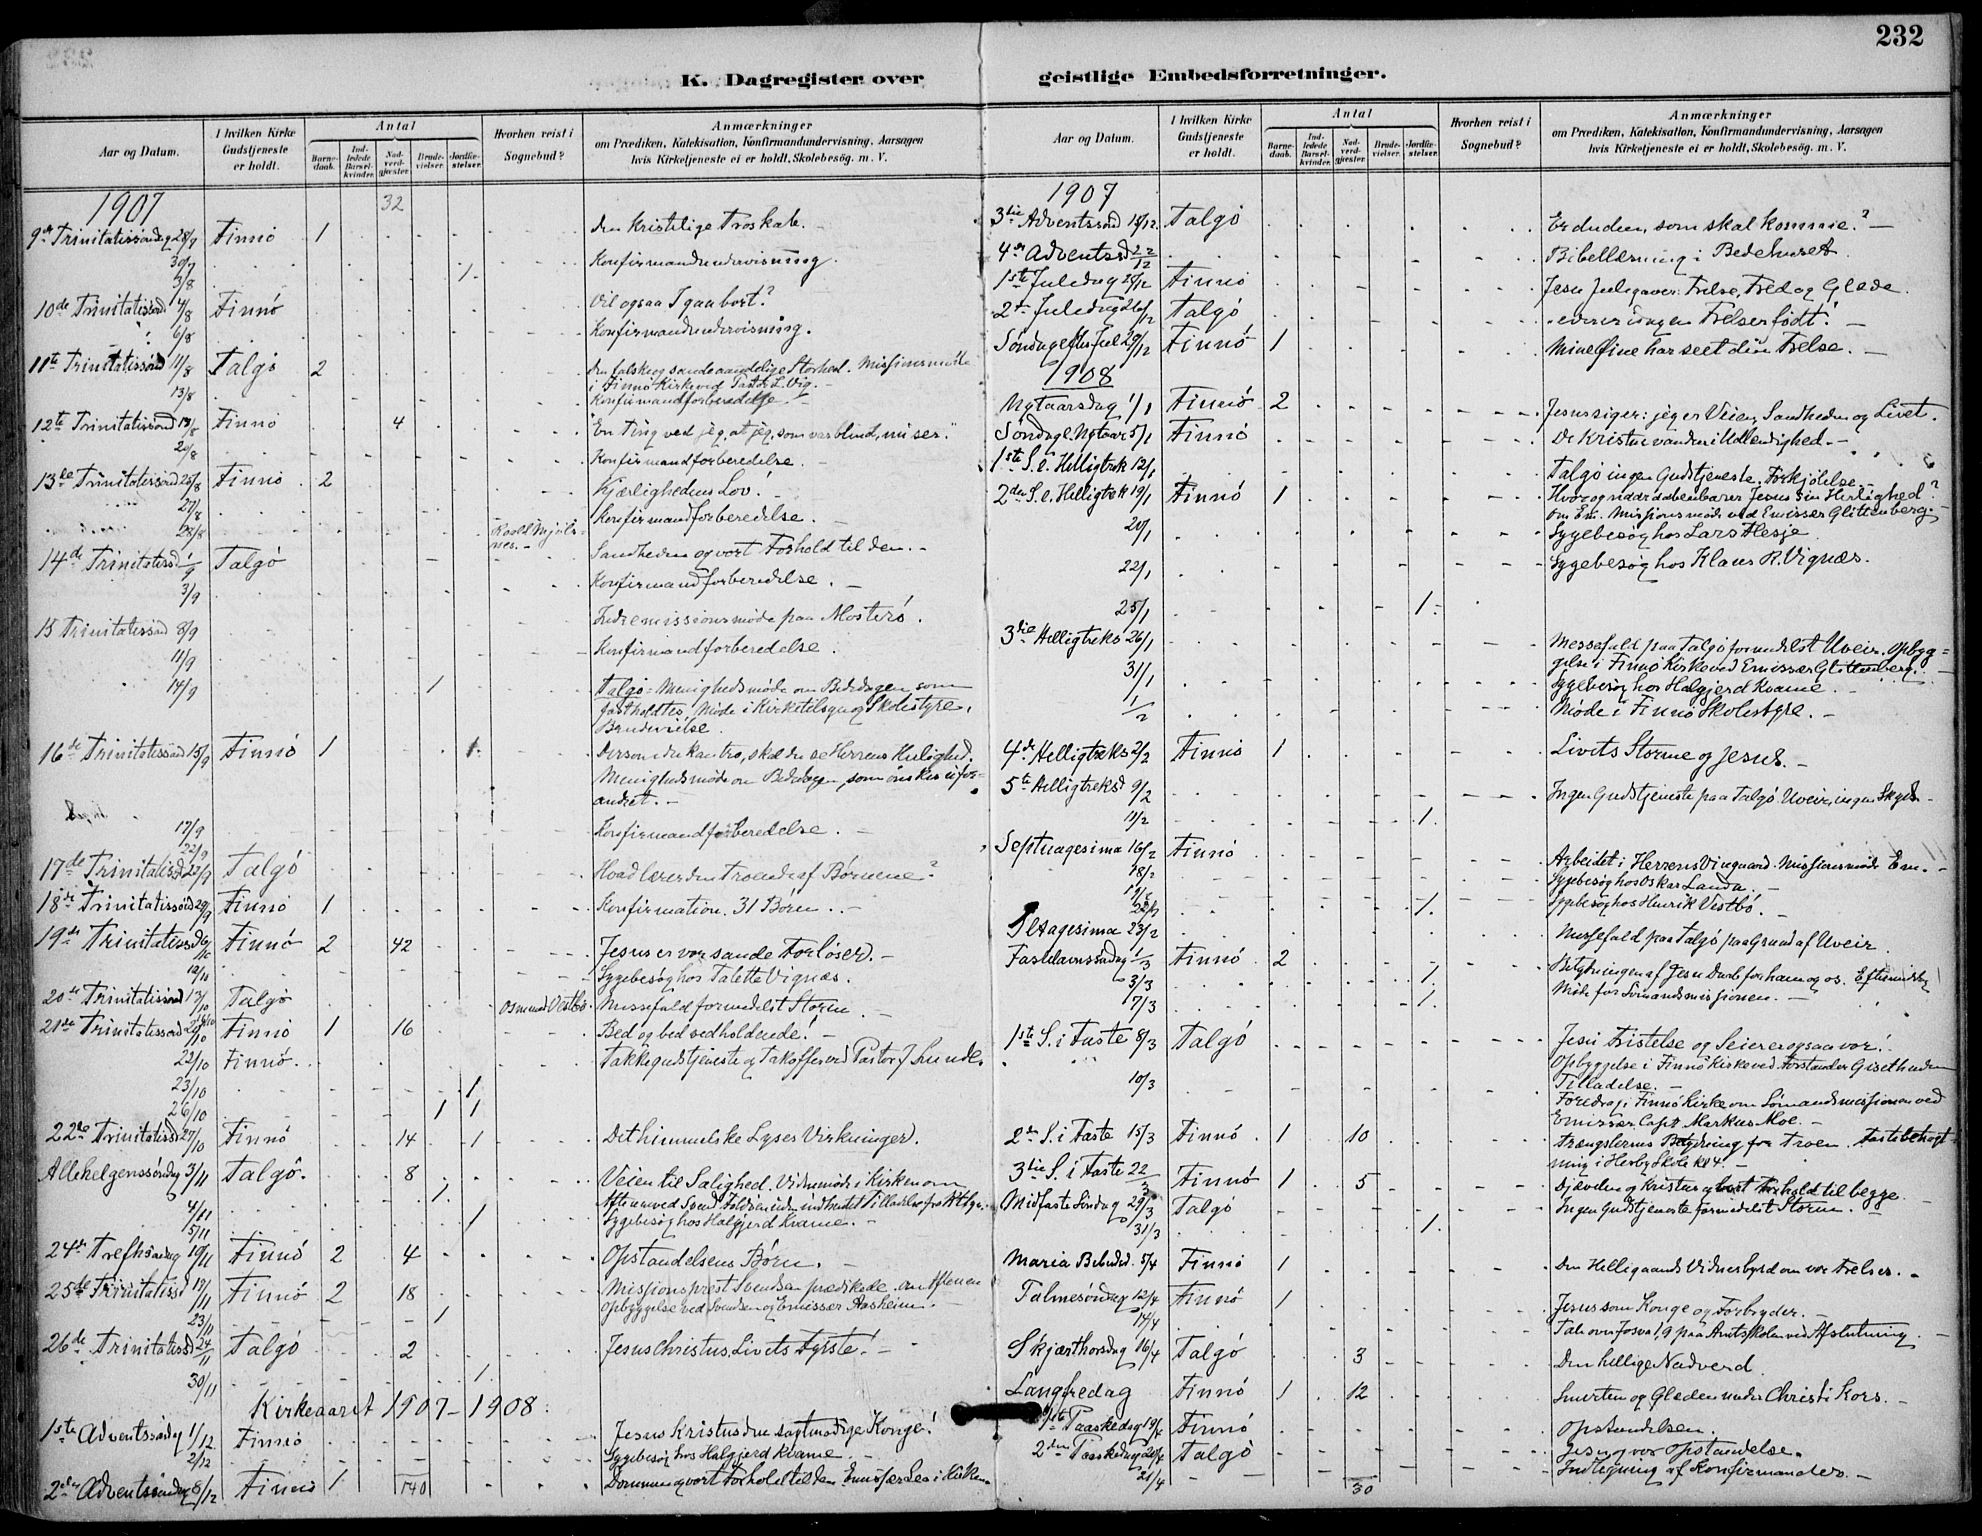 232
K. Dagregister over
geistlige Embedsforretninger.
Aar og Datum.
I hvilken Kirke Gudstjeneste er holdt.
Antal
Barnedaab.
Indledede Barselkvinder.
Nadverdgjester.
Brudevielser.
Jordfæstelser.
Hvorhen reist i Sognebud?
Anmærkninger
om Prædiken, Katekisation, Konfirmandundervisning, Aarsagen
hvis Kirketjeneste ei er holdt, Skolebesøg. m. V.
1907 32
9de Trinitatissøndag 28/7 Finnö 1 Den kristelige Troskab.
30/7 Konfirmandundervisning.
3/8 1.
10de Trinitatissönd 4/8 Finnö Vil ogsaa I gaa bort?
6/8 Konfirmandundervisning.
11te Trinitatissönd 11/8 Talgö 2 Den falske og sande aandelige Storhed. Missionsmøde
i Finnö Kirke ved Pastor L. Vig. -
13/8 Konfirmandforberedelse. -
12te Trinitatissönd 18/8 Finnö 4 "En Ting ved jeg, at jeg, som var blind, nu ser."
20/8 Konfirmandforberedelse.
13de Trinitatissönd 25/8 Finnö 2 Kjærlighedens Lov. -
27/8 Konfirmandforberedelse.
28/8
14de Trinitatissd 1/9 Talgö Sandheden og vort Forhold til den. -
3/9 Konfirmandforberedelse. -
15 Trinitatissönd 8/9 Indremissionsmøde paa Mosterö.
11/9 Konfirmandforberedelse.
14/9 1 Talgö - Menighedsmøde om Bededagen som
fastholdtes. Møde i Kirketilsyn og Skolestyre.
Brudevielse.
16de Trinitatissönd 15/9 Finnö 1 1. Dersom du kan tro, skal du se Herrens Herlighed.
Menighedsmøde om Bededagen, som önskes ufor-
andret. -
17/9 Konfirmandforberedelse. -
22/9
17de Trinitatissd 22/9 Talgö Hvad lærer den Troende af Børnene?
18de Trinitatissönd 29/9 Finnö 1 Konfirmation. 31 Børn. -
19de Trinitatissd 6/10 Finnö 2 42 Jesus er vor sande Forløser. -
12/10 Sygebesøg hos Talette Vignæs.
20de Trinitatissönd 13/10 Talgö Osmund Vestbö. Messefald formedelst Storm. -
21de Trinitatissönd 20/10 Finnö 1 16 Bed og bed vedholdende! -
22/10 Finnö. Takkegudstjeneste og Takoffer ved Pastor J. Sunde.
23/10 1
26/10 1 1
22de Trinitatissd 27/10 Finnö 14 1 Det himmelske Lyses Virkninger.
Allehelgenssöndag 3/11 Talgö. 8 Veien til Salighed. Vidnemøde i Kirken om
4/11 1
Sygebesøg hos Halgjerd Kvame. -
5/11 1
24de Trefhsöndag 10/11 Finnö 2 4 Opstandelsens Børn. -
25de Trinitatissd 17/11 Finnö 2 18 Missionsprest Svendsen prædikede. om Aftenen
Opbyggelse ved Svendsen og Emissær Aasheim. -
23/11 1
26de Trinitatissd 24/11 Talgö 2 Jesus Christus, Livets Fyrste! -
30/11 1.
Kirkeaaret 1907-1908.
1ste Adventssöndag 1/12 Finnö Jesus Kristus den sagtmodige Konge!
2/12 Sygebesøg hos Halgjerd Kvame. -
2den Adventssöndag 8/12 Finnö 1 140 Dommen og vort Forhold til den. Emissær Lea i Kirken
Aar og Datum.
I hvilken Kirke Gudstjeneste er holdt.
Antal
Barnedaab.
Indledede Barselkvinder.
Nadverdgjester.
Brudevielser.
Jordfæstelser.
Hvorhen reist i Sognebud?
Anmærkninger
om Prædiken, Katekisation, Konfirmandundervisning, Aarsagen
hvis Kirketjeneste ei er holdt, Skolebesøg. m. V.
1907
3die Adventssönd 15/12 Talgö Er du den, som skal komme? -
4de Adventssd 22/12 Bibellæsning i Bedehuset.
1ste Juledag 25/12 Finnö Jesu Julegaver: Frelse, Fred og Glæde.
2den Juledag 26/12 Talgö eder er idag en Frelser født! -
Söndag efter Jul 29/12 Finnö 1 Mine Øine har seet din Frelse. -
1908
Nytaarsdag 1/1 Finnö 2 Jesus siger: jeg er Veien, Sandheden og Livet.
Söndag e. Nytaar 5/1 Finnö De Kristne vandre i Udlændighed. -
1ste S. e. Helligtrek 12/1 Talgö ingen Gudstjeneste. Forkjölelse. -
2den S. e. Helligtrek 19/1 Finnö 1 Hvor og naar aabenbarer Jesus sin Herlighed?
om Em. Missionsmøde ved Emissær Glittenberg. -
20/1 Sygebesøg hos Lars Hesje.
22/1 Sygebesøg hos Klaus R. Vignæs.
25/1 1.
3die Helligtreks 26/1 Messefald paa Talgö formedelst Uveir. Opbyg-
gelse i Finnö Kirke ved Emissær Glittenberg. -
31/1 Sygebesøg hos Halgjerd Kvame. -
1/2 Møde i Finnö Skolestyre. -
4de Helligtreks 2/2 Finnö 1 Livets Storme og Jesus. -
5te Helligtreksd 9/2 Ingen Gudstjeneste paa Talgö. Uveir, ingen Skyds -
11/2 1.
Septuagesima 16/2 Finnö Arbeidet i Herrens Vingaard. Missionsmøde Em. -
18/2 Sygebesøg hos Oskar Landa. -
Sygebesøg hos Henrik Vestbö. -
22/2 1.
Sexagesima 23/2 Messefald paa Talgö paa Grund af Uveir.
Fastelavnssöndag 1/3 Finnö 2 Betydningen af Jesu Daab for ham og os. Eftermiddag
Møde for Sömandsmissionen. -
3/3 1.
7/3 1.
1ste S. i Faste 8/3 Talgö Jesu Fristelse og Seier er ogsaa vor!
Opbyggelse i Finnö Kirke ved Forstander Giset uden
Tilladelse. -
10/3 Foredrag i Finnö Kirke om Sömandsmissionen ved
Emissær Capt. Markus Moe. -
2den S. i Faste 15/3 Finnö 1 10 Trængslernes Betydning for Troen. Fastebetragt-
ning i Hesby Skole kl 4. -
3die S. i Faste 22/3 Finnö 1 5 Djævelen og Kristus og vort Forhold til begge.
Midfaste Söndag 29/3 Talgö Ingen Gudstjeneste formedelst Storm. -
31/3 1.
Maria Bebudd. 5/4 Finnö 1 Den Helligaands Vidnesbyrd om vor Frelser. -
Palmesöndag 12/4 Finnö 1 Jesus som Konge og Forbryder. -
14/4 Tale over Josva 1,9 paa Amtskolen ved Afslutning. -
Skjærthorsdag 16/4 Talgö 3 Den hellige Nadverd.
Langfredag Finnö 1 12 Smerten og Glæden under Christi Kors. -
1ste Paaskedag 19/4 Finnö Opstandelsen.
2den Paaskedag 20/4 Talgö Jesu og vor Opstandelse.
21/4 30 Indtegning af Konfirmander. -